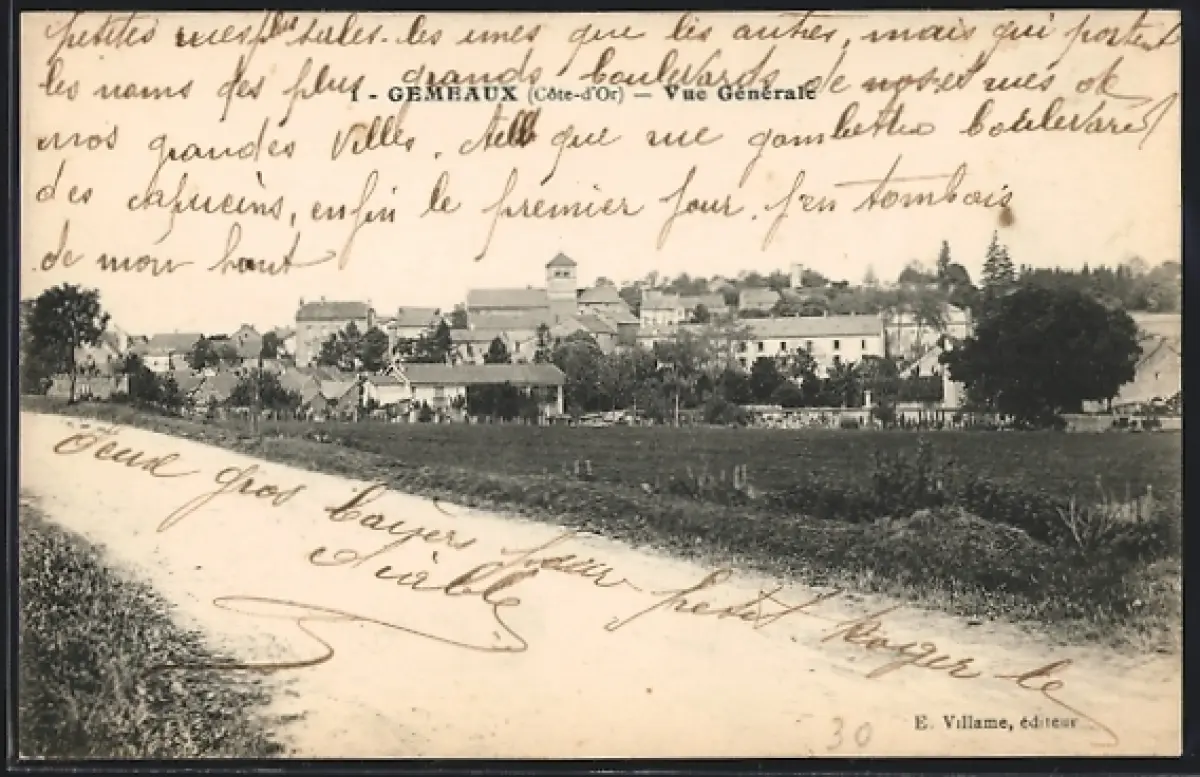 petites rues plus sales les unes que les autres, mais qui portent
les noms des plus grands boulevards de nos rues de
1 - GEMEAUX (Côte-d'Or) — Vue Générale
nos grandes Villes. tell que rue gambetta boulevard
des capucins, enfin le premier jour j'en tombais
de mon haut
deux gros bayers pour petit Roger le
diable
E. Villame, éditeur
30